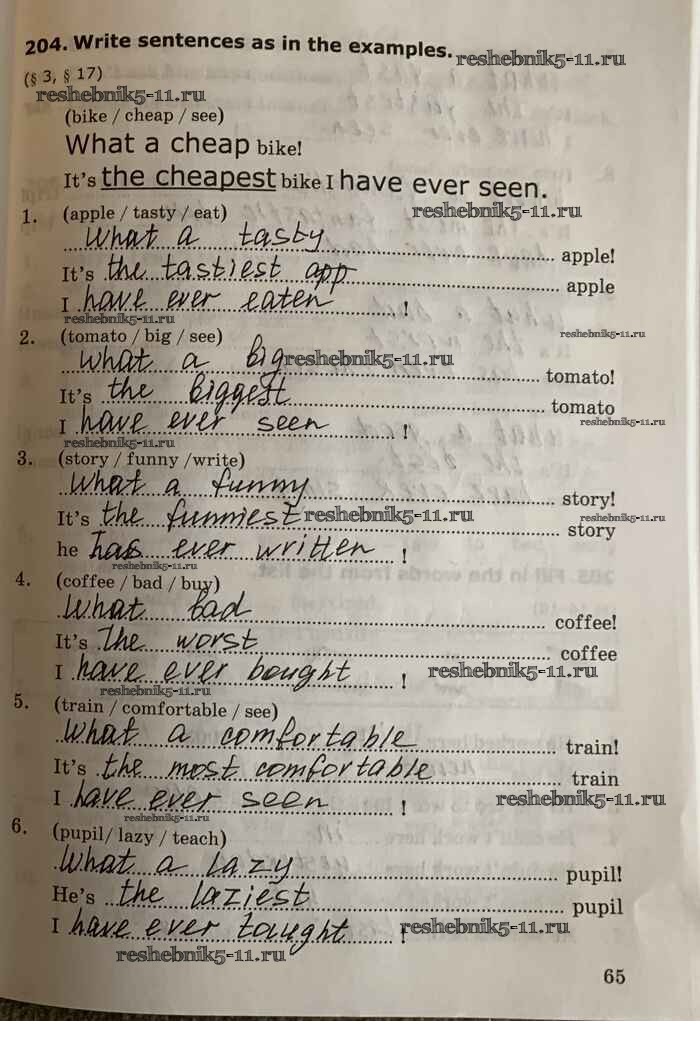 204. Write sentences as in the examples. reshebnik5-11.ru
(§ 3, § 17)
reshebnik5-11.ru
(bike / cheap / see)
What a cheap bike!
It's the cheapest bike I have ever seen.
1. (apple / tasty / eat) reshebnik5-11.ru
What a tasty apple!
It's the tastiest app apple
I have ever eaten !
reshebnik5-11.ru
2. (tomato / big / see) reshebnik5-11.ru
What a big reshebnik5-11.ru tomato!
It's the biggest tomato
I have ever seen ! reshebnik5-11.ru
reshebnik5-11.ru
3. (story / funny /write)
What a funny story!
It's the funniest reshebnik5-11.ru story reshebnik5-11.ru
he has ever written !
reshebnik5-11.ru
4. (coffee / bad / buy)
What bad coffee!
It's the worst coffee
I have ever bought ! reshebnik5-11.ru
reshebnik5-11.ru
5. (train / comfortable / see)
What a comfortable train!
It's the most comfortable train
I have ever seen ! reshebnik5-11.ru
reshebnik5-11.ru
6. (pupil/ lazy / teach)
What a lazy pupil!
He's the laziest pupil
I have ever taught ! reshebnik5-11.ru
reshebnik5-11.ru
65